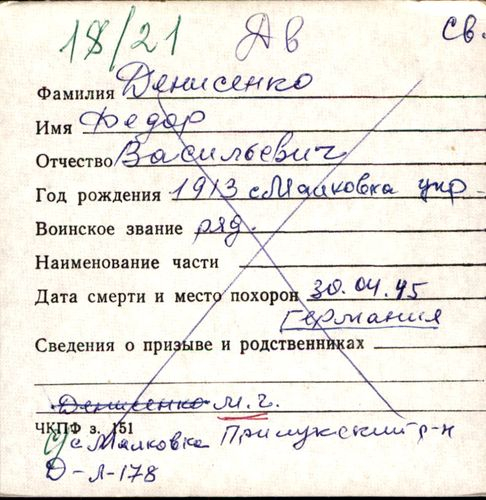 18/21 Дв св.
Фамилия Денисенко
Имя Федор
Отчество Васильевич
Год рождения 1913 с Малковка укр.
Воинское звание ряд.
Наименование части
Дата смерти и место похорон 30.04.45
Германия
Сведения о призыве и родственниках
Денисенко М.г.
ЧКПФ з. 151
с Малковка Прилукский р-н
Д-л-178